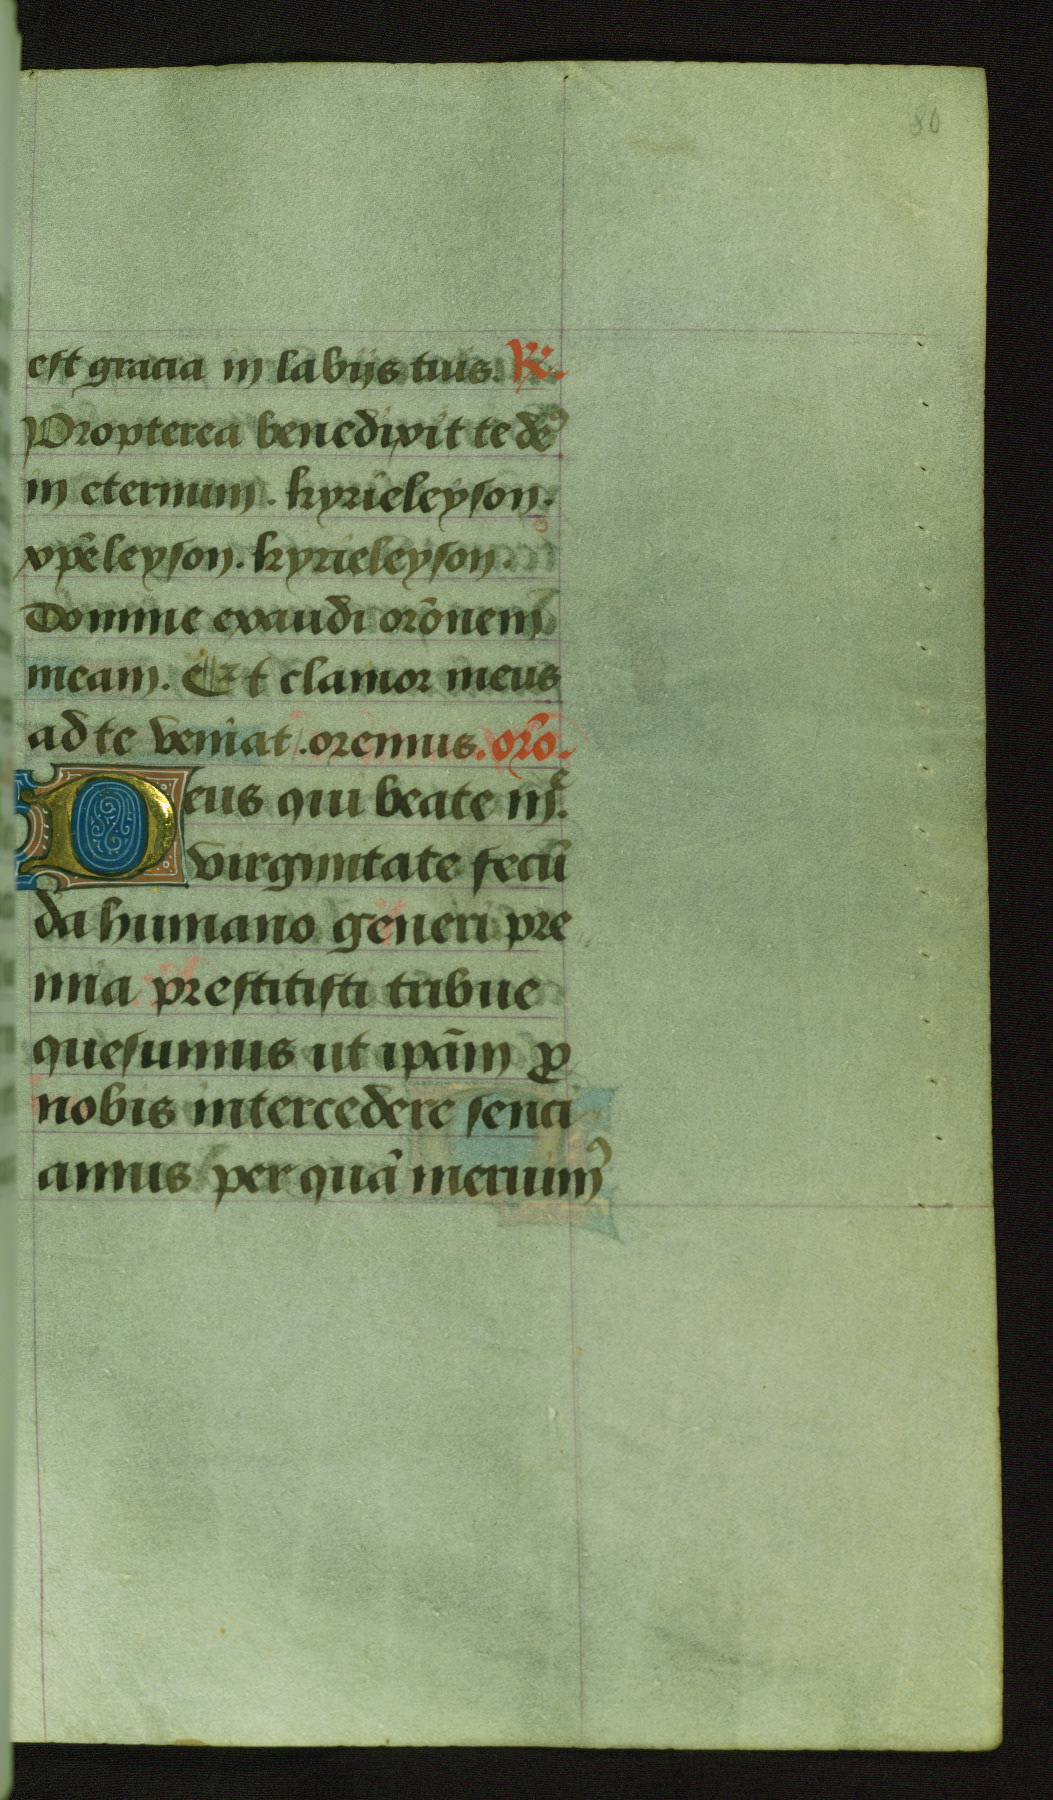 80
est gracia in labijs tuis. R.
Propterea benedixit te de⁹
in eternum. kyrieleyson.
xp̄eleyson. kyrieleyson.
Domine exaudi orōnem
meam. Et clamor meus
ad te veniat. oremus. orō.
Deus qui beate mͤ.
virginitate fecū
da humano generi pre
mia prestitisti tribue
quesumus ut ipām ꝓ
nobis intercedere senci
amus per quā meruim⁹